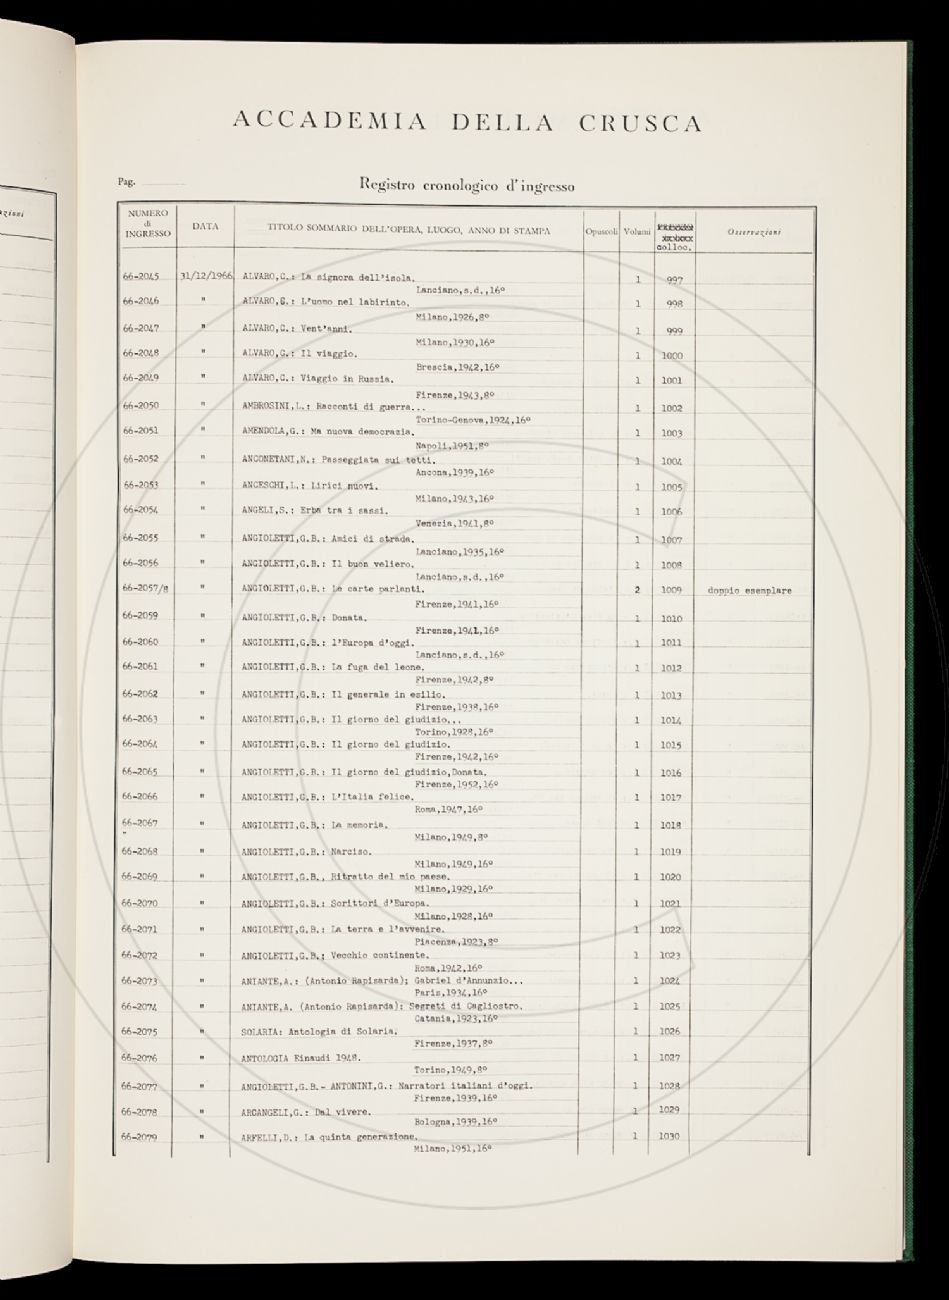 azioni
ACCADEMIA DELLA CRUSCA
Pag.
Registro cronologico d'ingresso
NUMERO di INGRESSO DATA TITOLO SOMMARIO DELL'OPERA, LUOGO, ANNO DI STAMPA Opuscoli Volumi colloc. Osservazioni
66-2045 31/12/1966 ALVARO,C.: La signora dell'isola. 1 997
Lanciano,s.d.,16º
66-2046 " ALVARO,C.: L'uomo nel labirinto. 1 998
Milano,1926,8º
66-2047 " ALVARO,C.: Vent'anni. 1 999
Milano,1930,16º
66-2048 " ALVARO,C.: Il viaggio. 1 1000
Brescia,1942,16º
66-2049 " ALVARO,C.: Viaggio in Russia. 1 1001
Firenze,1943,8º
66-2050 " AMBROSINI,L.: Racconti di guerra... 1 1002
Torino-Genova,1924,16º
66-2051 " AMENDOLA,G.: Ma nuova democrazia. 1 1003
Napoli,1951,8º
66-2052 " ANCONETANI,N.: Passeggiata sui tetti. 1 1004
Ancona,1939,16º
66-2053 " ANCESCHI,L.: Lirici nuovi. 1 1005
Milano,1943,16º
66-2054 " ANGELI,S.: Erba tra i sassi. 1 1006
Venezia,1941,8º
66-2055 " ANGIOLETTI,G.B.: Amici di strada. 1 1007
Lanciano,1935,16º
66-2056 " ANGIOLETTI,G.B.: Il buon veliero. 1 1008
Lanciano,s.d.,16º
66-2057/8 " ANGIOLETTI,G.B.: Le carte parlanti. 2 1009 doppio esemplare
Firenze,1941,16º
66-2059 " ANGIOLETTI,G.B.: Donata. 1 1010
Firenze,1941,16º
66-2060 " ANGIOLETTI,G.B.: l'Europa d'oggi. 1 1011
Lanciano,s.d.,16º
66-2061 " ANGIOLETTI,G.B.: La fuga del leone. 1 1012
Firenze,1942,8º
66-2062 " ANGIOLETTI,G.B.: Il generale in esilio. 1 1013
Firenze,1938,16º
66-2063 " ANGIOLETTI,G.B.: Il giorno del giudizio... 1 1014
Torino,1928,16º
66-2064 " ANGIOLETTI,G.B.: Il giorno del giudizio. 1 1015
Firenze,1942,16º
66-2065 " ANGIOLETTI,G.B.: Il giorno del giudizio,Donata. 1 1016
Firenze,1952,16º
66-2066 " ANGIOLETTI,G.B.: L'Italia felice. 1 1017
Roma,1947,16º
66-2067 " ANGIOLETTI,G.B.: La memoria. 1 1018
Milano,1949,8º
66-2068 " ANGIOLETTI,G.B.: Narciso. 1 1019
Milano,1949,16º
66-2069 " ANGIOLETTI,G.B., Ritratto del mio paese. 1 1020
Milano,1929,16º
66-2070 " ANGIOLETTI,G.B.: Scrittori d'Europa. 1 1021
Milano,1928,16º
66-2071 " ANGIOLETTI,G.B.: La terra e l'avvenire. 1 1022
Piacenza,1923,8º
66-2072 " ANGIOLETTI,G.B; Vecchio continente. 1 1023
Roma,1942,16º
66-2073 " ANIANTE,A.: (Antonio Rapisarda); Gabriel d'Annunzio... 1 1024
Paris,1934,16º
66-2074 " ANIANTE,A. (Antonio Rapisarda): Segreti di Cagliostro. 1 1025
Catania,1923,16º
66-2075 " SOLARIA: Antologia di Solaria. 1 1026
Firenze,1937,8º
66-2076 " ANTOLOGIA Einaudi 1948. 1 1027
Torino,1949,8º
66-2077 " ANGIOLETTI,G.B.- ANTONINI,G.: Narratori italiani d'oggi. 1 1028
Firenze,1939,16º
66-2078 " ARCANGELI,G.: Dal vivere. 1 1029
Bologna,1939,16º
66-2079 " ARFELLI,D.: La quinta generazione. 1 1030
Milano,1951,16º